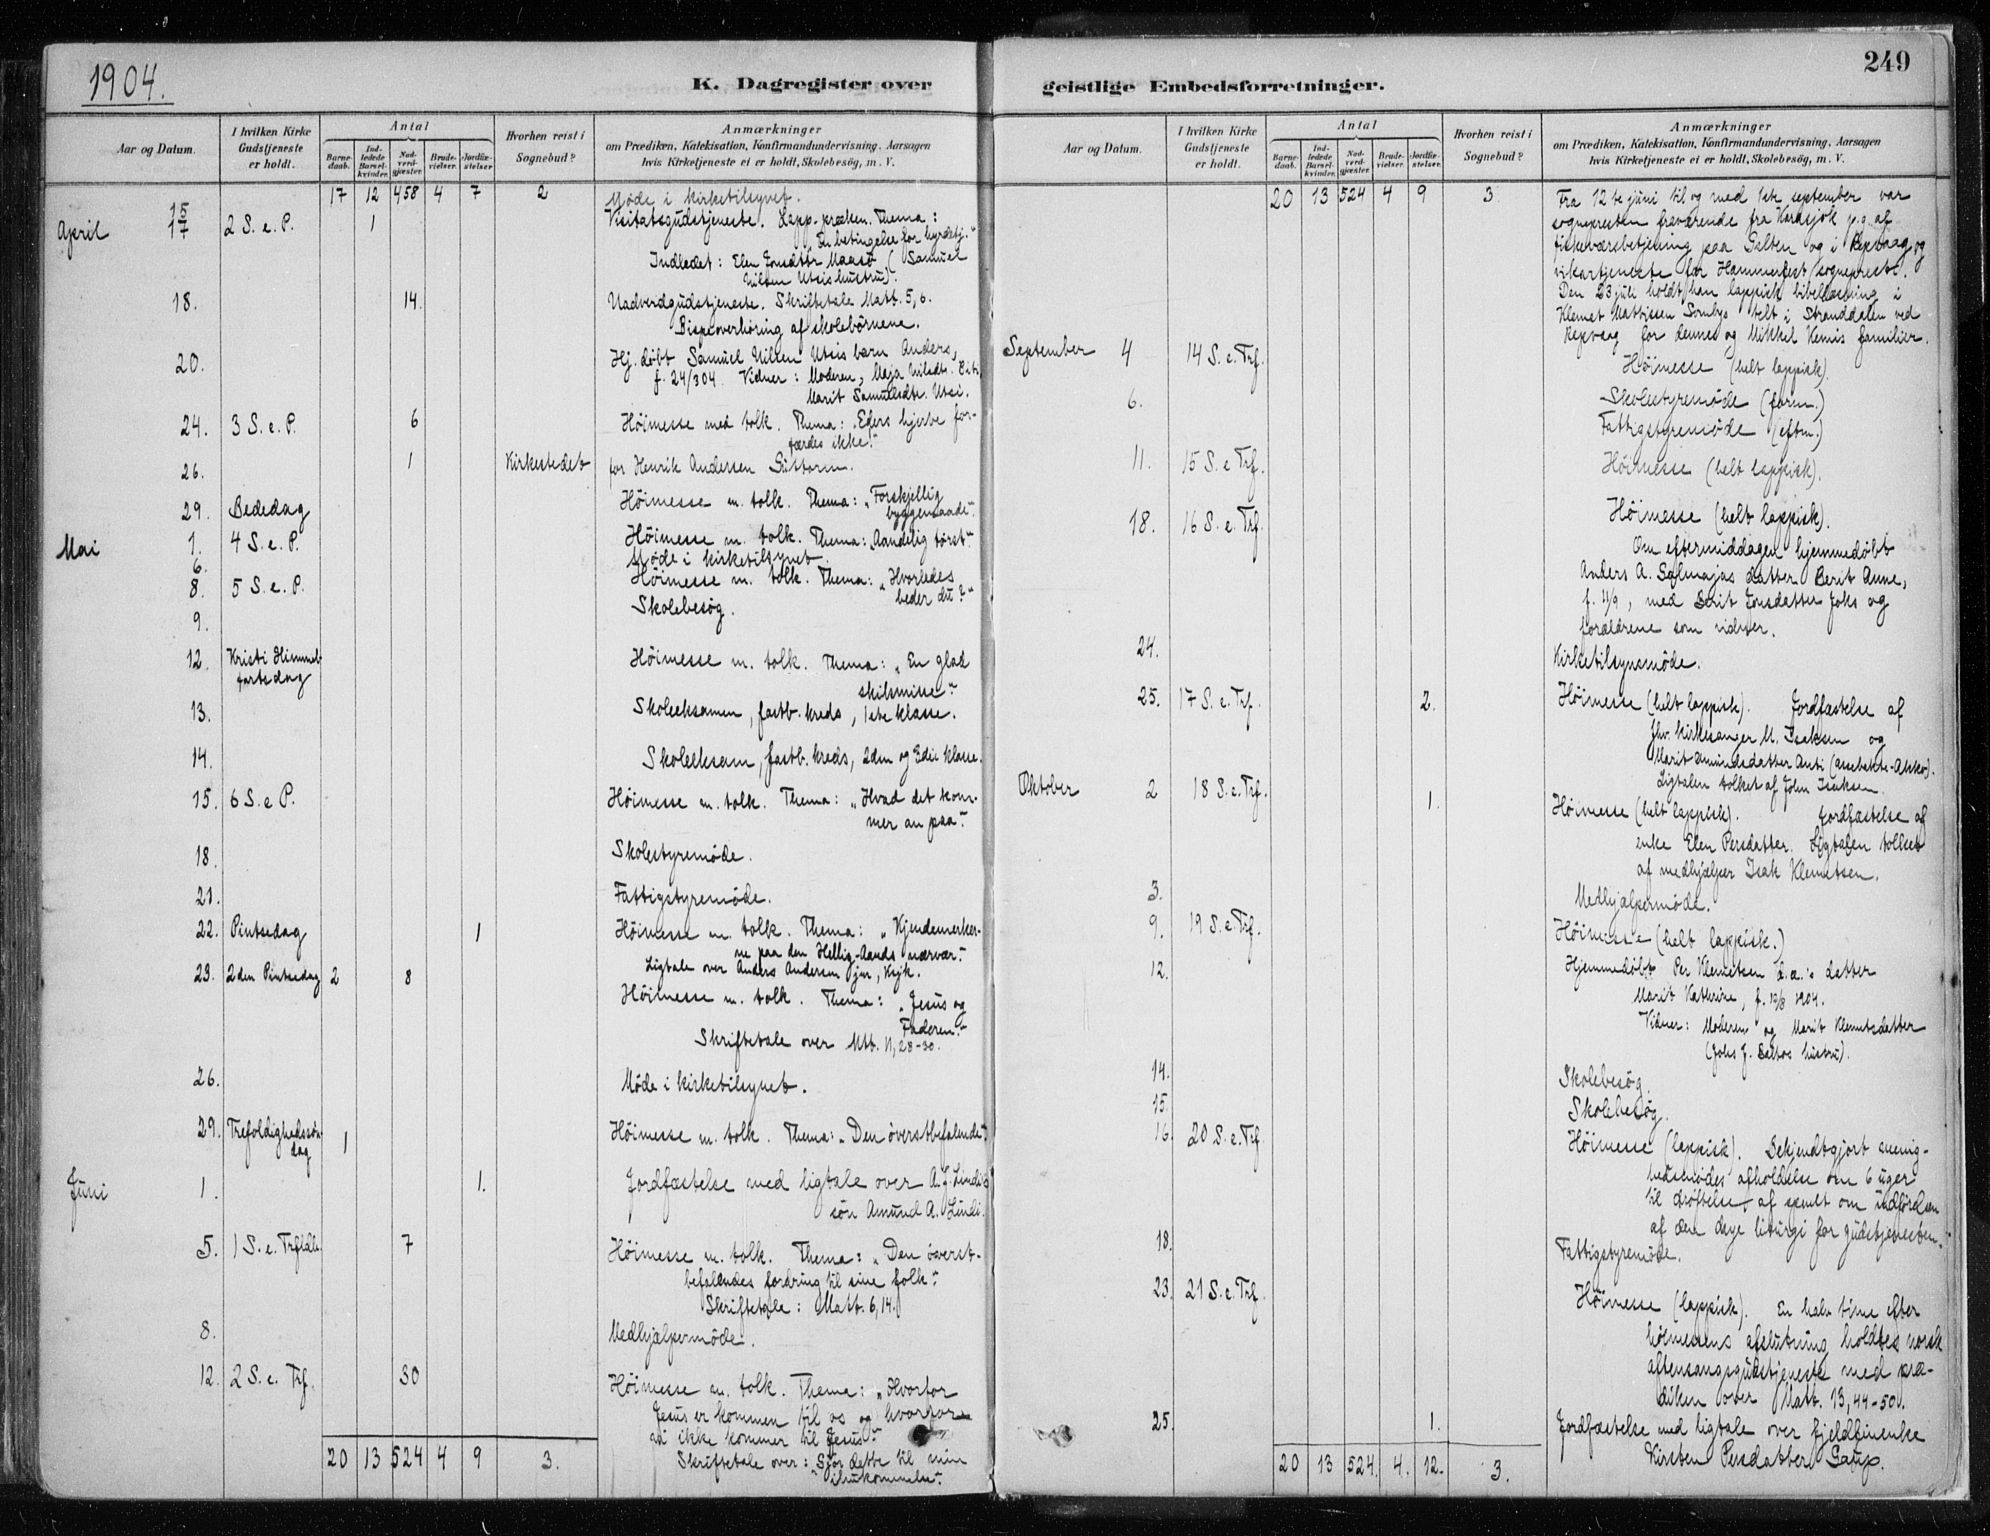 1904.
K. Dagregister over
Aar og Datum.
I hvilken Kirke Gudstjeneste er holdt.
Antal
Barnedaab.
Indledede Barselkvinder.
Nadverdgjæster.
Brudevielser.
Jordfæstelser.
Hvorhen reist i Sognebud?
Anmærkninger
om Prædiken, Katekisation, Konfirmandundervisning. Aarsagen
hvis Kirketjeneste ei er holdt, Skolebesög, m. V.
17 12 458 4 7 2
April 15 Møde i kirketilsynet.
17 2 S. e. P. 1 Visitatsgudstjeneste. Lapp. præken. Thema:
„En betingelse for hyrdetj.“
Indledet: Elen Jonsdatter Maasø (Samuel
Nilsen Utsis hustru).
18. 14. Nadverdgudstjeneste. Skriftetale Matt. 5, 6.
Bispeoverhøring af skolebørnene.
20. Hj. døbt Samuel Nilsen Utsis barn Anders,
f. 24/3 04. Vidner: Moderen, Maja Nilsdt.
Marit Samuelsdtr. Utsi.
24. 3 S. e. P. 6 Høimesse med tolk. Thema: „Eders hjerte for-
færdes ikke“.
26. 1 Kirkestedet for Henrik Andersen Guttorm.
29. Bededag Høimesse m. tolk. Thema: „Forskjellig
byggemaade“.
Mai 1. 4 S. e. P. Høimesse m. tolk. Thema: „Aandelig tørst“.
6. Møde i kirketilsynet.
8. 5 S. e. P. Høimesse m. tolk. Thema: „Hvorledes
beder du?“
9. Skolebesøg.
12. Kristi Himmel-
fartsdag Høimesse m. tolk. Thema: „En glad
skilsmisse“.
13. Skoleeksamen, fastb. kreds, 1ste klasse.
14. Skoleeksam, fastb. kreds, 2den og 3die klasse.
15. 6 S. e P. Høimesse m. tolk. Thema: „Hvad det kom-
mer an paa“.
18. Skolestyremøde.
21. Fattigstyremøde.
22. Pintsedag 1 Høimesse m. tolk. Thema: „Kjendemerker-
ne paa den Hellig-Aands nærvær“.
Ligtale over Anders Andersen jnr, Ksjk.
23. 2den Pintsedag 2 8 Høimesse m. tolk. Thema: „Jesus og
Faderen“.
Skriftetale over Mtt. 11, 28-30.
26. Møde i kirketilsynet.
29. Trefoldighedssøn-
dag 1 Høimesse m. tolk. Thema: „Den øverstbefalende“
Juni 1. 1. Jordfæstelse med ligtale over A. J. Lindis
søn Amund A. Lindi.
5. 1 S. e. Trfdh. 7 Høimesse m. tolk. Thema: „Den øverst-
befalendes fordring til sine folk“.
Skriftetale: Matt. 6, 14.
8. Medhjælpermøde.
12. 2 S. e. Trf. 30 Høimesse m. tolk. Thema: „Hvorfor
Jesus er kommen til os og hvorfor
vi ikke kommer til Jesus“.
Skriftetale over: „Gjør dette til min
ihukommelse“.
20 13 524 4 9 3.
249
geistlige Embedsforretninger.
Aar og Datum.
I hvilken Kirke Gudstjeneste er holdt.
Antal
Barnedaab.
Indledede Barselkvinder.
Nadverdgjæster.
Brudevielser.
Jordfæstelser.
Hvorhen reist i Sognebud?
Anmærkninger
om Prædiken, Katekisation, Konfirmandundervisning, Aarsagen
hvis Kirketjeneste ei er holdt, Skolebesög, m. V.
20 13 524 4 9 3
Fra 12te juni til og med 1ste september var
sognepresten fraværende fra Karasjok p. g. af
fiskeværsbetjening paa Galten og i Repvaag, og
vikartjeneste for Hammerfest sogneprest.
Den 23 juli holdt han lappisk bibellæsning i
Klemet Mattissen Sombys telt i Stranddalen ved
Repvaag for dennes og Mikkel Kemis familier.
September 4 14 S. e. Trf. Høimesse (helt lappisk).
6. Skolestyremøde (form.)
Fattigstyremøde (eftm.)
11. 15 S. e Trf. Høimesse (helt lappisk).
18. 16 S. e. Trf. Høimesse (helt lappisk).
Om eftermiddagen hjemmedøbt
Anders A. Salmajas datter Berit Anne,
f. 11/9, med Berit Jonsdatter Joks og
forældrene som vidner.
24. Kirketilsynsmøde.
25. 17 S. e. Trf. 2. Høimesse (helt lappisk). Jordfæstelse af
fhv. kirkesanger M. Isaksen og
Marit Amundsdatter Anti
Ligtalen tolket af John Isaksen.
Oktober 2 18 S. e. Trf. 1. Høimesse (helt lappisk). Jordfæstelse af
enke Elen Persdatter. Ligtalen tolket
af medhjælper Isak Klemetsen.
3. Medhjælpermøde.
9. 19 S. e. Trf. Høimesse (helt lappisk.)
12. Hjemmedøbt Per Klemetsen datter
Marit Kathrine, f. 19/8 1904.
Vidner: Moderen og Marit Klemetsdatter
(Johs J. Baltos hustru).
14. Skolebesøg.
15. Skolebesøg.
16. 20 S. e. Trf. Høimesse (lappisk). Bekjendtgjort menig-
hedsmødes afholdelse om 6 uger
til drøftelse af spmlt om indførelsen
af den nye liturgi for gudstjenesten.
18. Fattigstyremøde.
23. 21 S. e. Trf. Høimesse (lappisk). En halv time efter
høimessens afslutning holdtes norsk
aftensangsgudstjeneste med præ-
diken over Matt. 13, 44-50.
25. 1. Jordfæstelse med ligtale over fjeldfinenke
Kirsten Persdatter Gaup.
20 13 524 4. 12. 3.